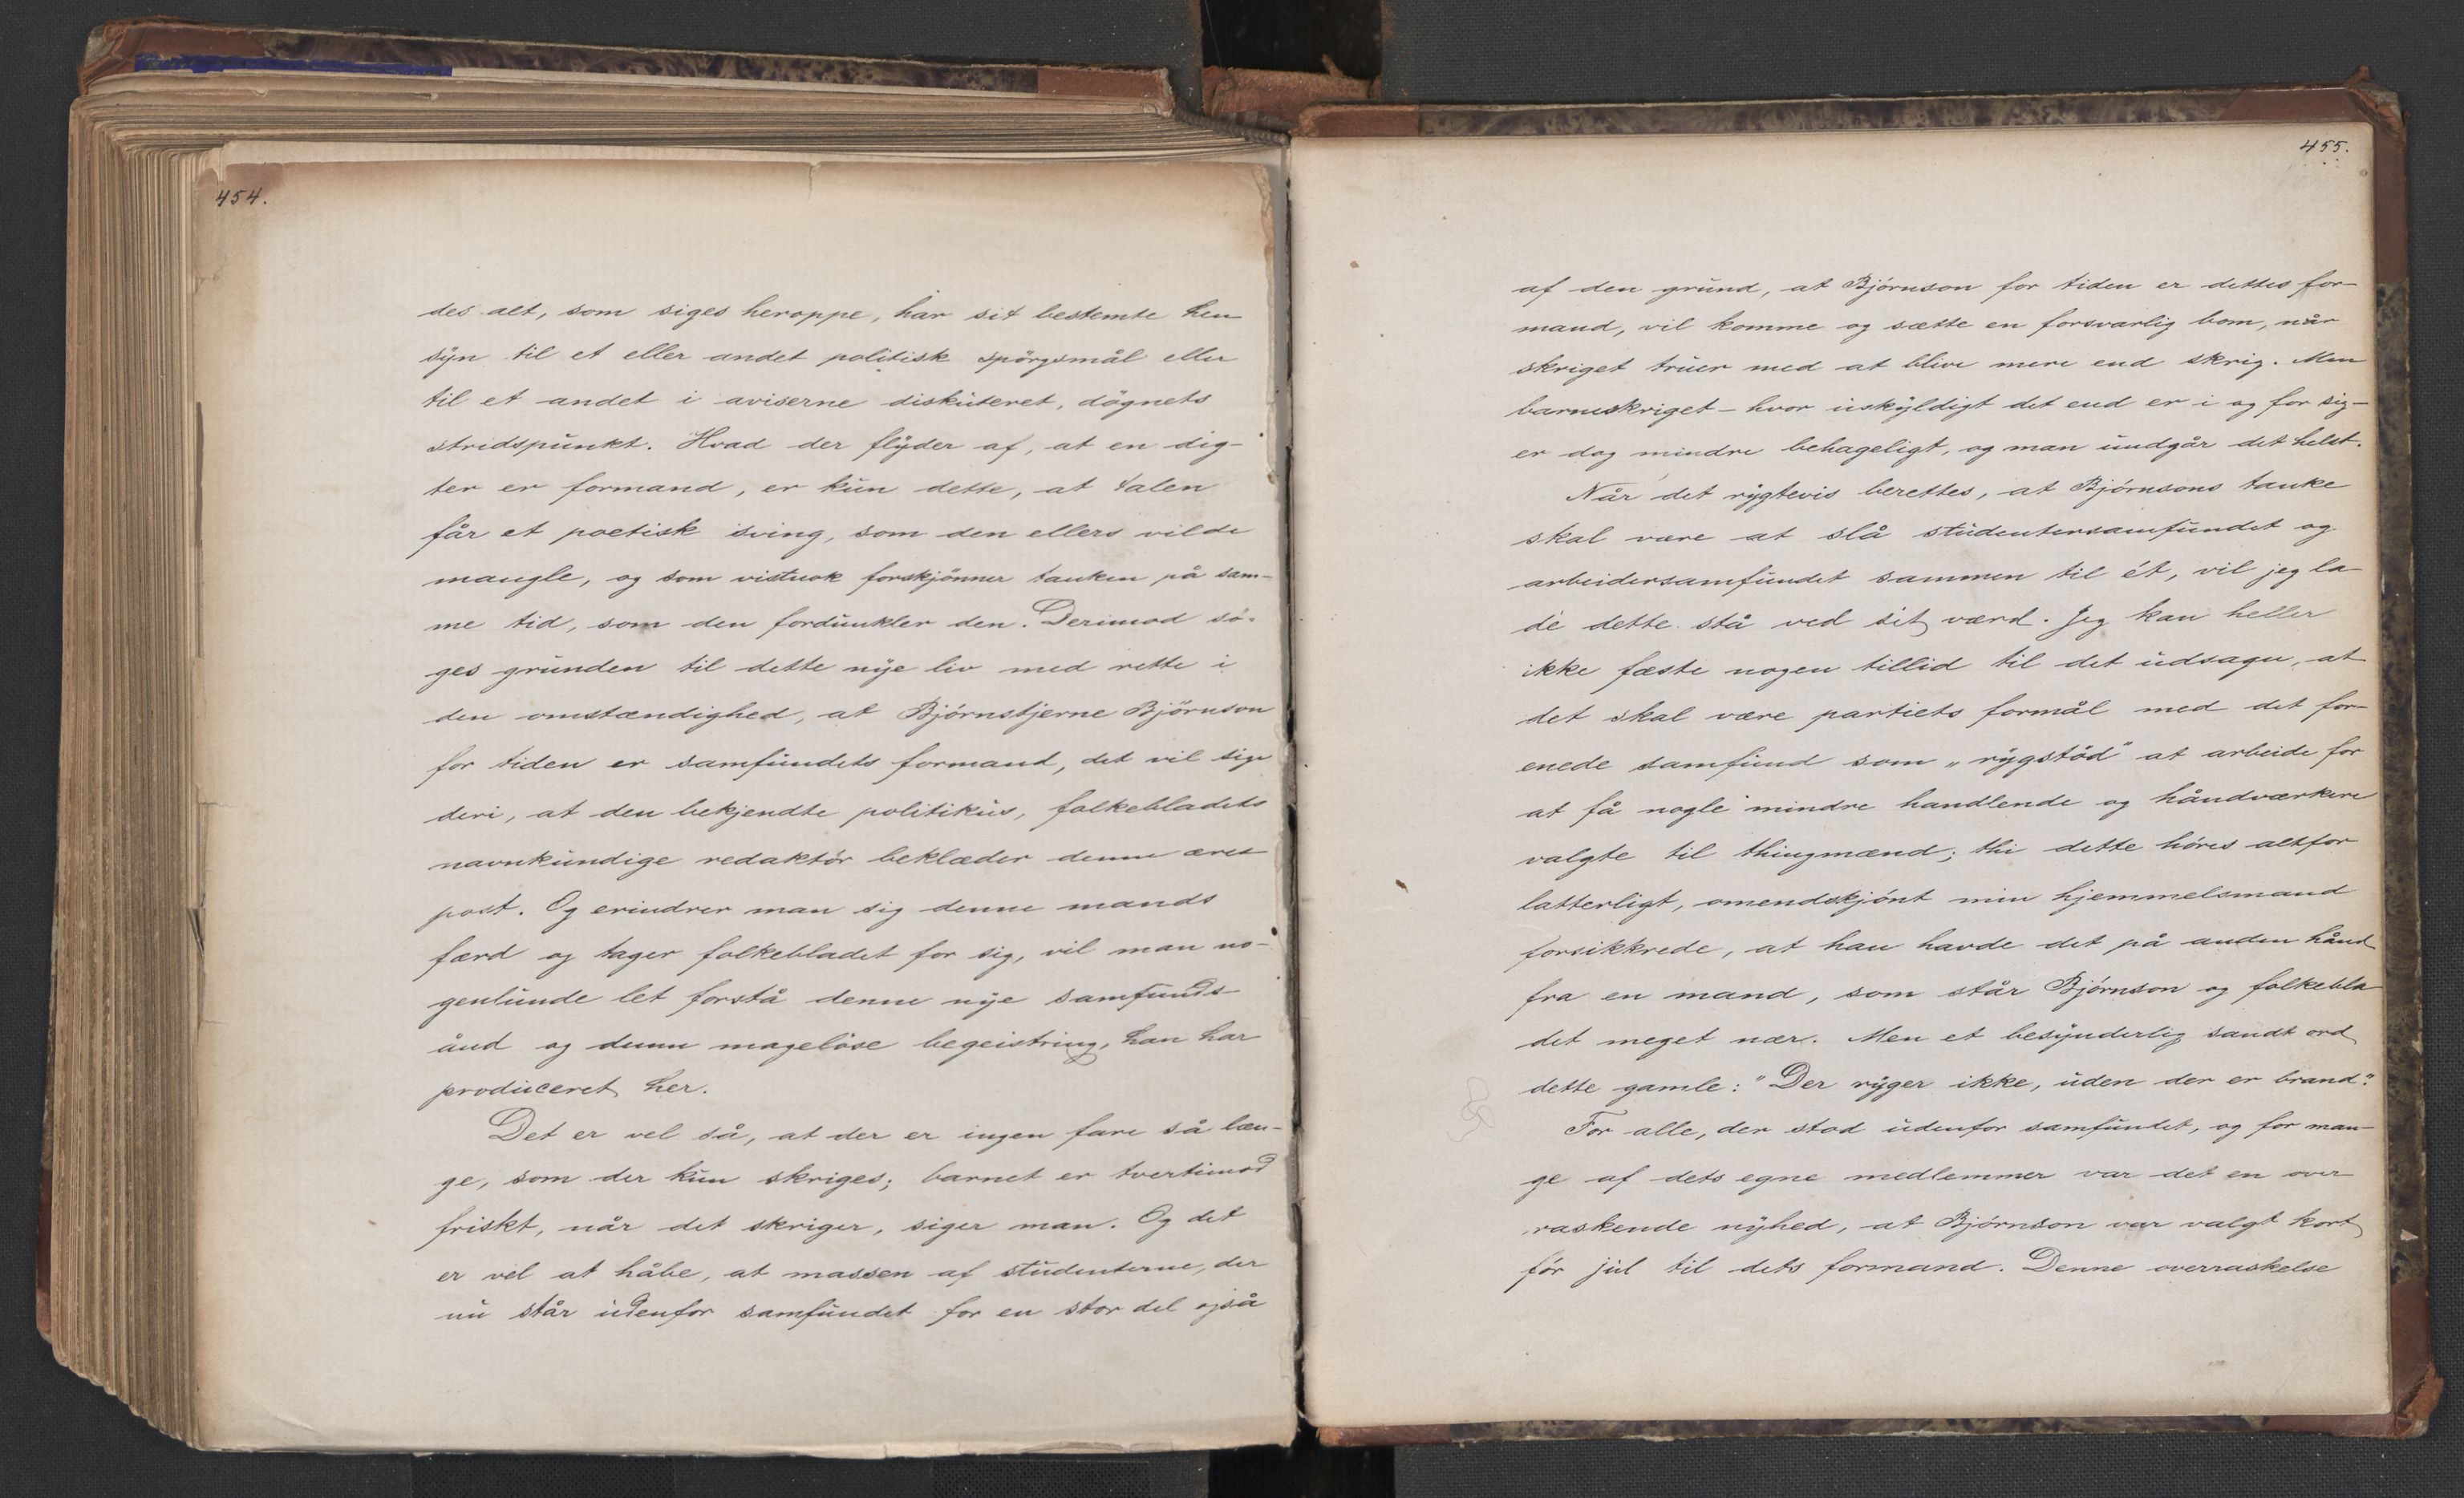 454.
des alt, som siges heroppe, har sit bestemte hen
syn til et eller andet politisk spörgsmål eller
til et andet i aviserne diskuteret, dögnets
stridspunkt. Hvad der flyder af, at en dig-
ter er formand, er kun dette, at talen
får et poetisk sving, som den ellers vilde
mangle, og som vistnok forskjönner tanken på sam-
me tid, som den fordunkler den. Derimod sö-
ges grunden til dette nye liv med rette i
den omstændighed, at Björnstjerne Björnson
for tiden er samfundets formand, det vil sige
deri, at den bekjendte politikus, folkebladets
navnkundige redaktör beklæder denne æres
post. Og erindrer man sig denne mands
færd og tager folkebladet for sig, vil man no-
genlunde let forstå denne nye samfunds-
ånd og denne magelöse begeistring, han har
produceret her.
Det er vel så, at der er ingen fare så læn-
ge, som der kun skriges; barnet er tvertimod
friskt, når det skriger, siger man. Og det
er vel at håbe, at massen af studenterne, der
nu står udenfor samfundet for en stor del også
455.
af den grund, at Björnson for tiden er dettes for-
mand, vil komme og sætte en forsvarlig bom, når
skriget truer med at blive mere end skrig. Men
barneskriget – hvor uskyldigt det end er i og for sig –
er dog mindre behageligt, og man undgår det helst.
Når det rygtevis berettes, at Björnsons tanke
skal være at slå studentersamfundet og
arbeidersamfundet sammen til ét, vil jeg la-
de dette stå ved sit værd. Jeg kan heller
ikke fæste nogen tillid til det udsagn, at
det skal være partiets formål med det for-
enede samfund som „rygstöd" at arbeide for
at få nogle mindre handlende og håndværkere
valgte til thingmænd; thi dette höres altfor
latterligt, omendskjönt min hjemmelsmand
forsikkrede, at han havde det på anden hånd
fra en mand, som står Björnson og folkebla
det meget nær. Men et besynderlig sandt ord
dette gamle: "Der ryger ikke, uden der er brand".
For alle, der stod udenfor samfundet, og for man-
ge af dets egne medlemmer var det en over
raskende nyhed, at Björnson var valgt kort
för jul til dets formand. Denne overraskelse